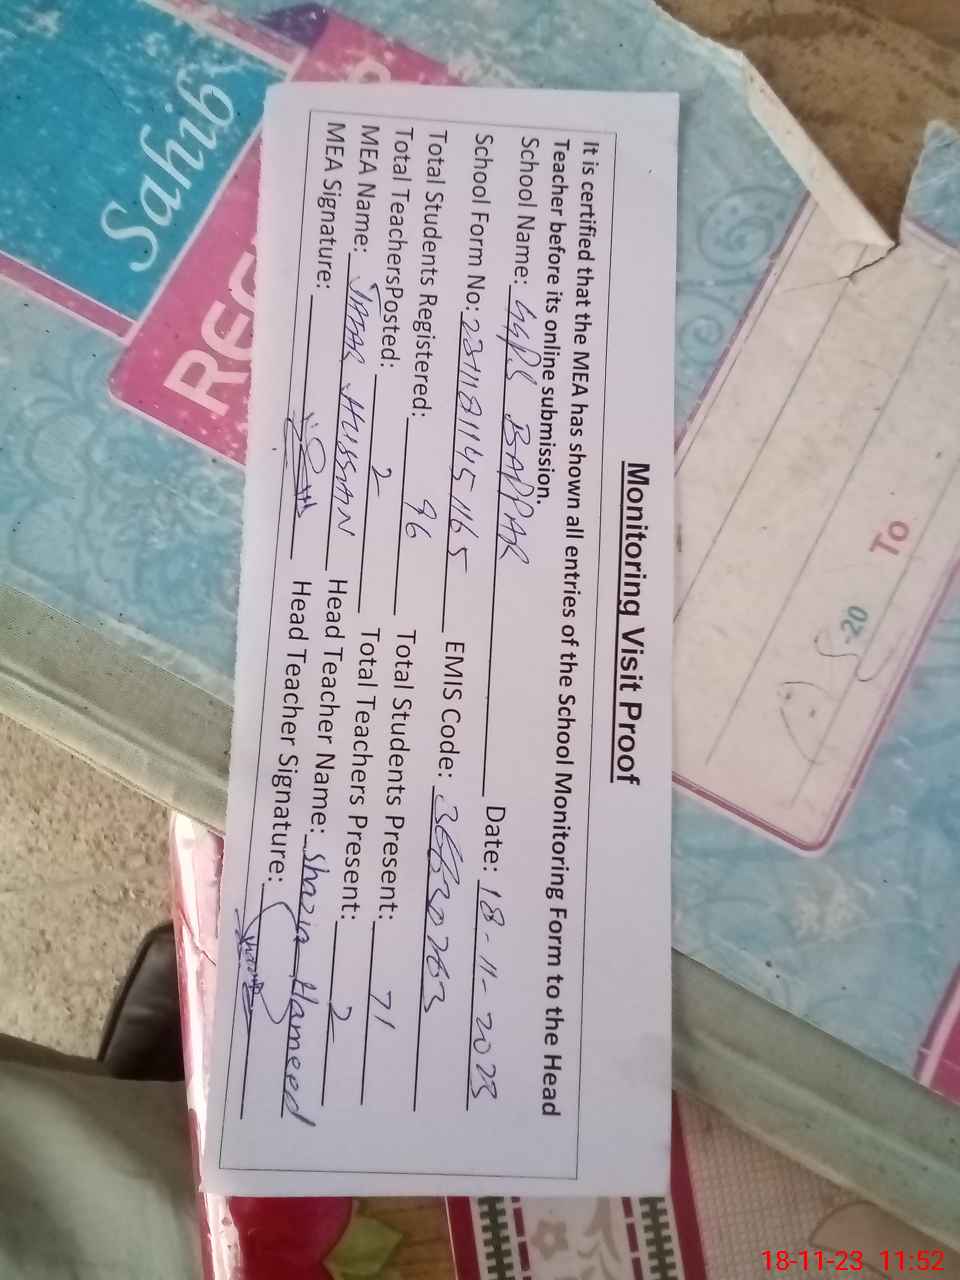 Monitoring Visit Proof
It is certified that the MEA has shown all entries of the School Monitoring Form to the Head
Teacher before its online submission.
School Name: GGPS BAPPAR Date: 18-11-2023
School Form No: 2311181145 1165 EMIS Code: 36630263
Total Students Registered: 96 Total Students Present: 71
Total TeachersPosted: 2 Total Teachers Present: 2
MEA Name: JAFAR HUSSAIN Head Teacher Name: Shazia Hameed
MEA Signature: Head Teacher Signature:
Sahib
REG
To
520
18-11-23 11:52